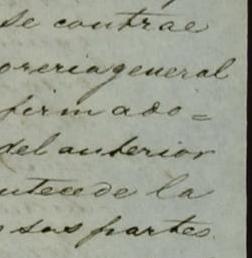 se contrae
oreria general
firmado=
del anterior
ntecede la
sus partes